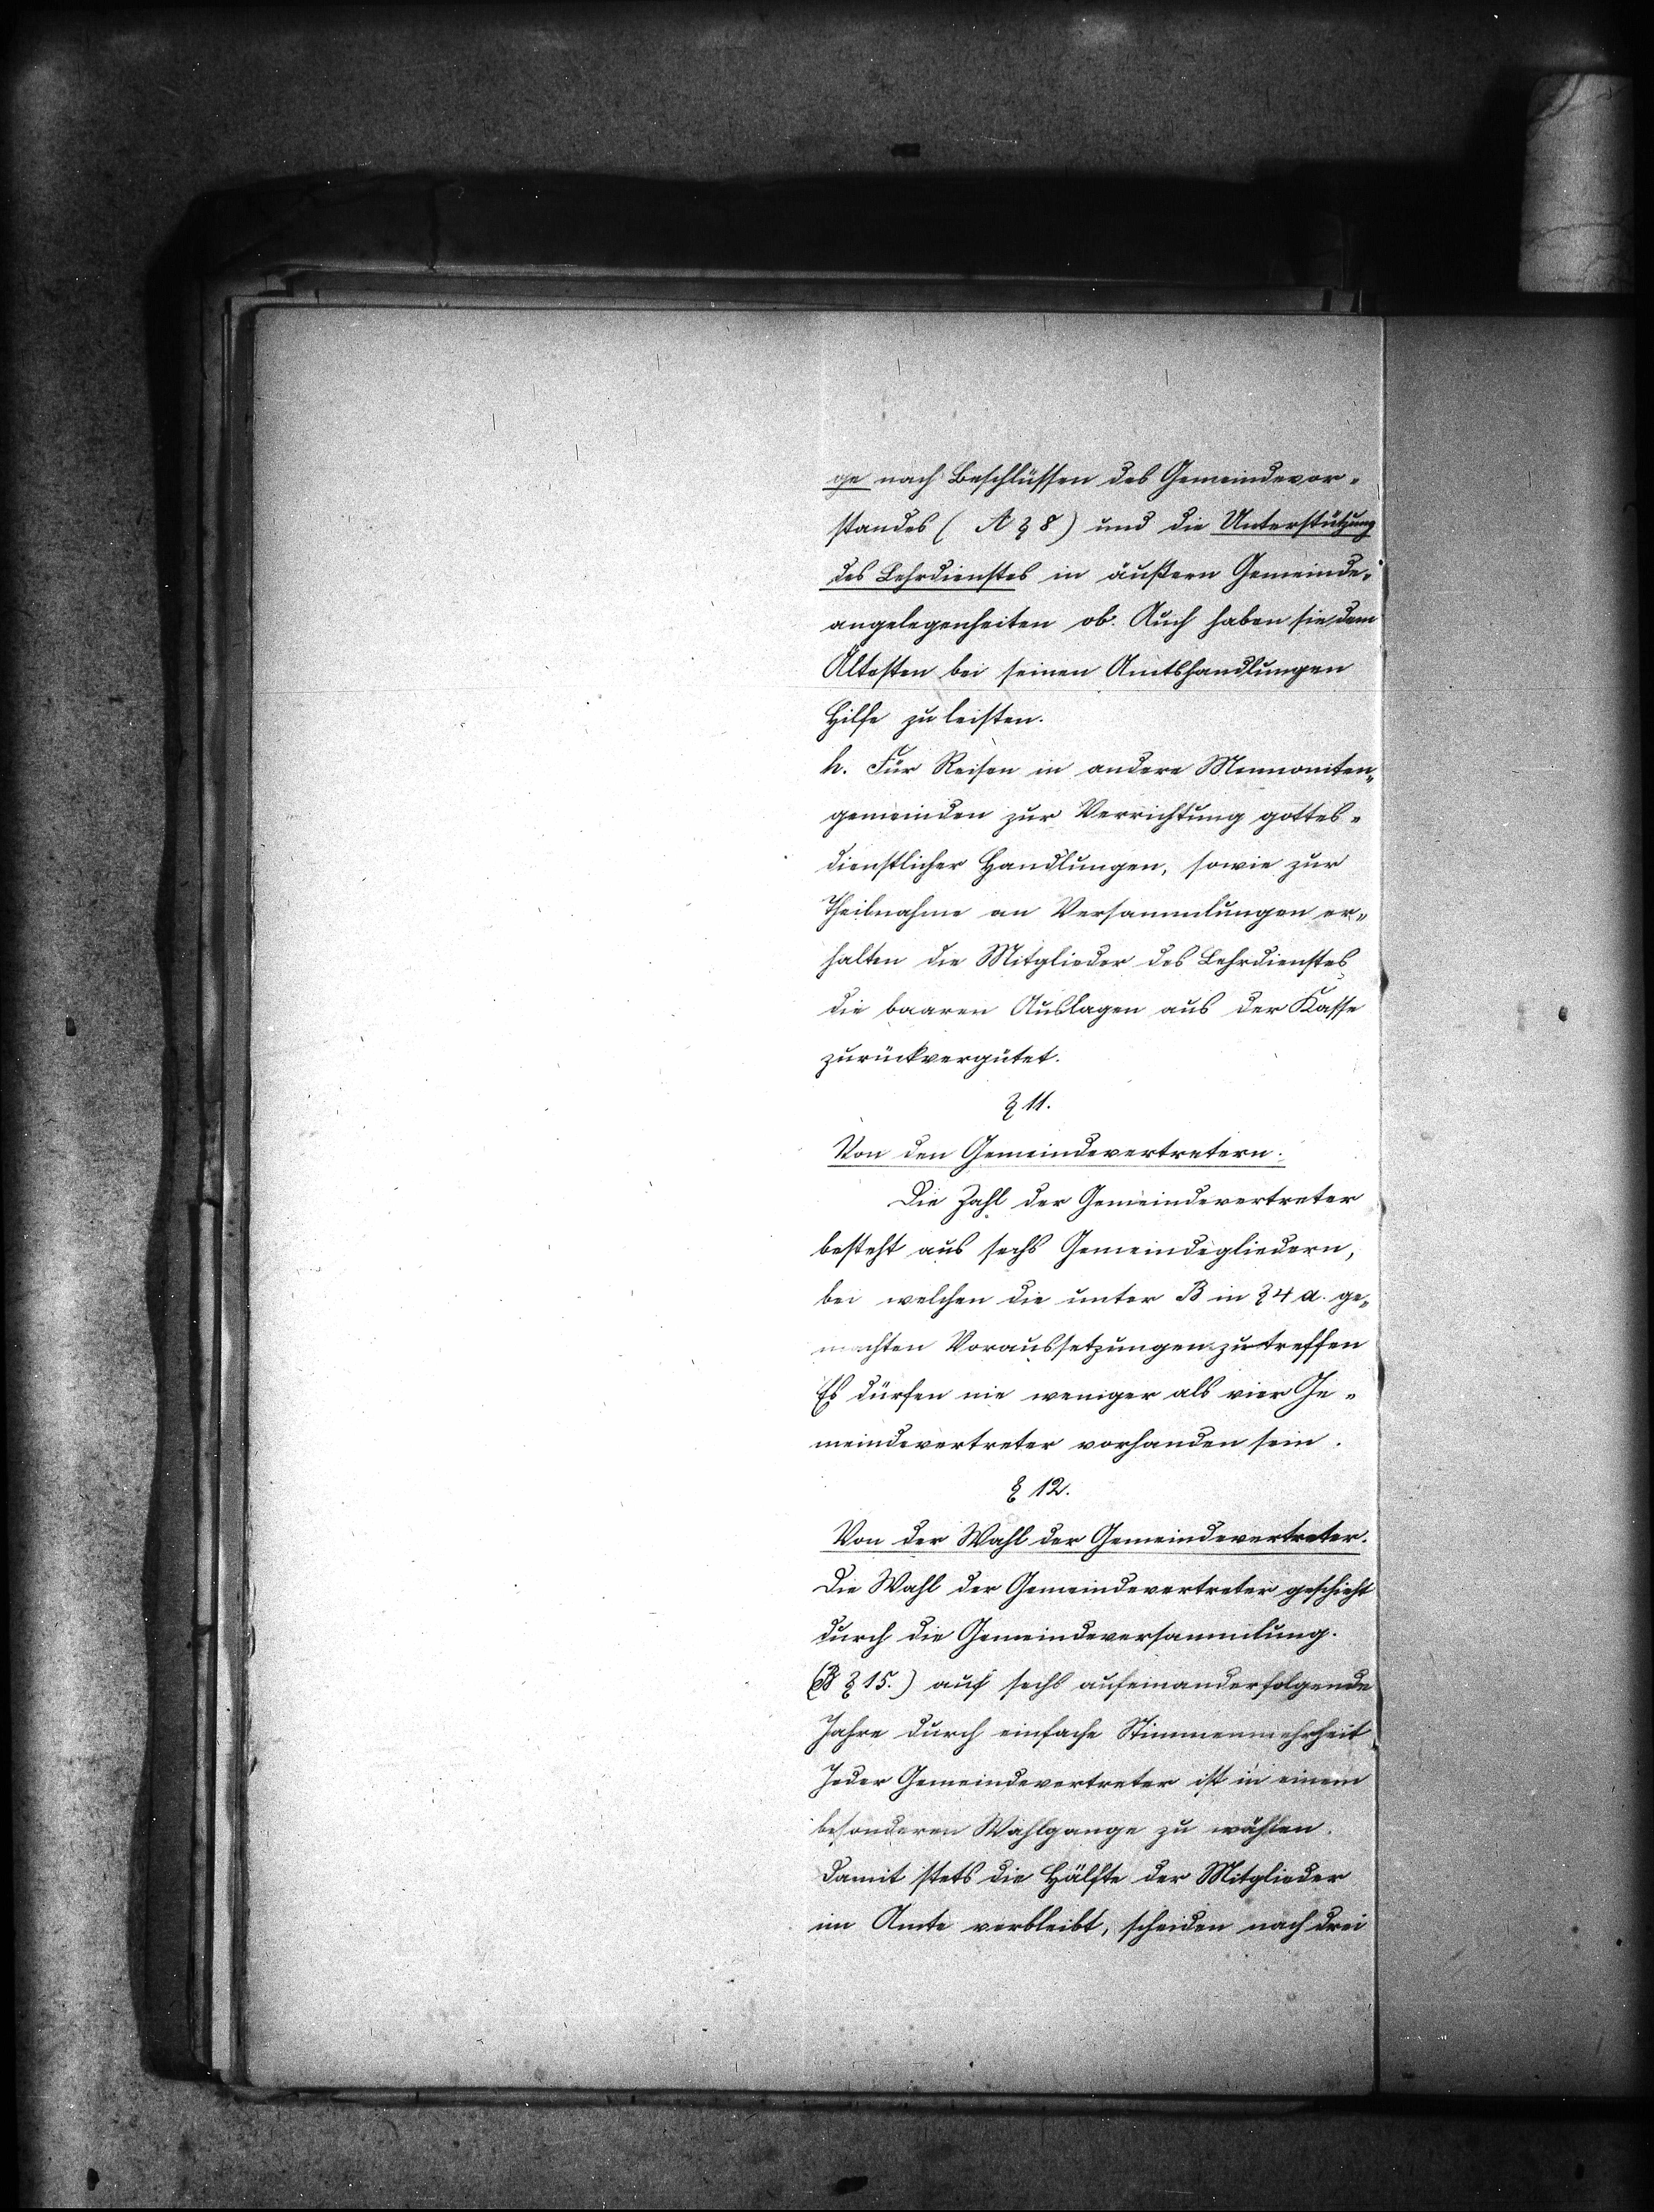 ge nach Beschlüssen des Gemeindevor-
standes ( A § 8) und die Unterstützung
des Lehrdienstes in äußern Gemeinde-
angelegenheiten ob. Auch haben sie dem
Ältesten bei seinen Amtshandlungen
Hilfe zu leisten.
h. Für Reisen in andere Mennoniten-
gemeinden zur Verrichtung gottes-
dienstlicher Handlungen, sowie zur
Theilnahme an Versammlungen er-
halten die Mitglieder des Lehrdienstes
die baaren Auslagen aus der Kasse
zurückvergütet.
§ 11.
Von den Gemeindevertretern.
Die Zahl der Gemeindevertreter
besteht aus sechs Gemeindegliedern,
bei welchen die unter B in § 4 a. ge-
machten Voraussetzungen zutreffen
Es dürfen nie weniger als vier Ge-
meindevertreter vorhanden sein.
§ 12.
Von der Wahl der Gemeindevertreter.
Die Wahl der Gemeindevertreter geschieht
durch die Gemeindeversammlung.
(B § 15.) auf sechs aufeinanderfolgende
Jahre durch einfache Stimmenmehrheit
Jeder Gemeindevertreter ist in einem
besonderen Wahlgange zu wählen.
Damit stets die Hälfte der Mitglieder
im Amte verbleibt, scheiden nach drei